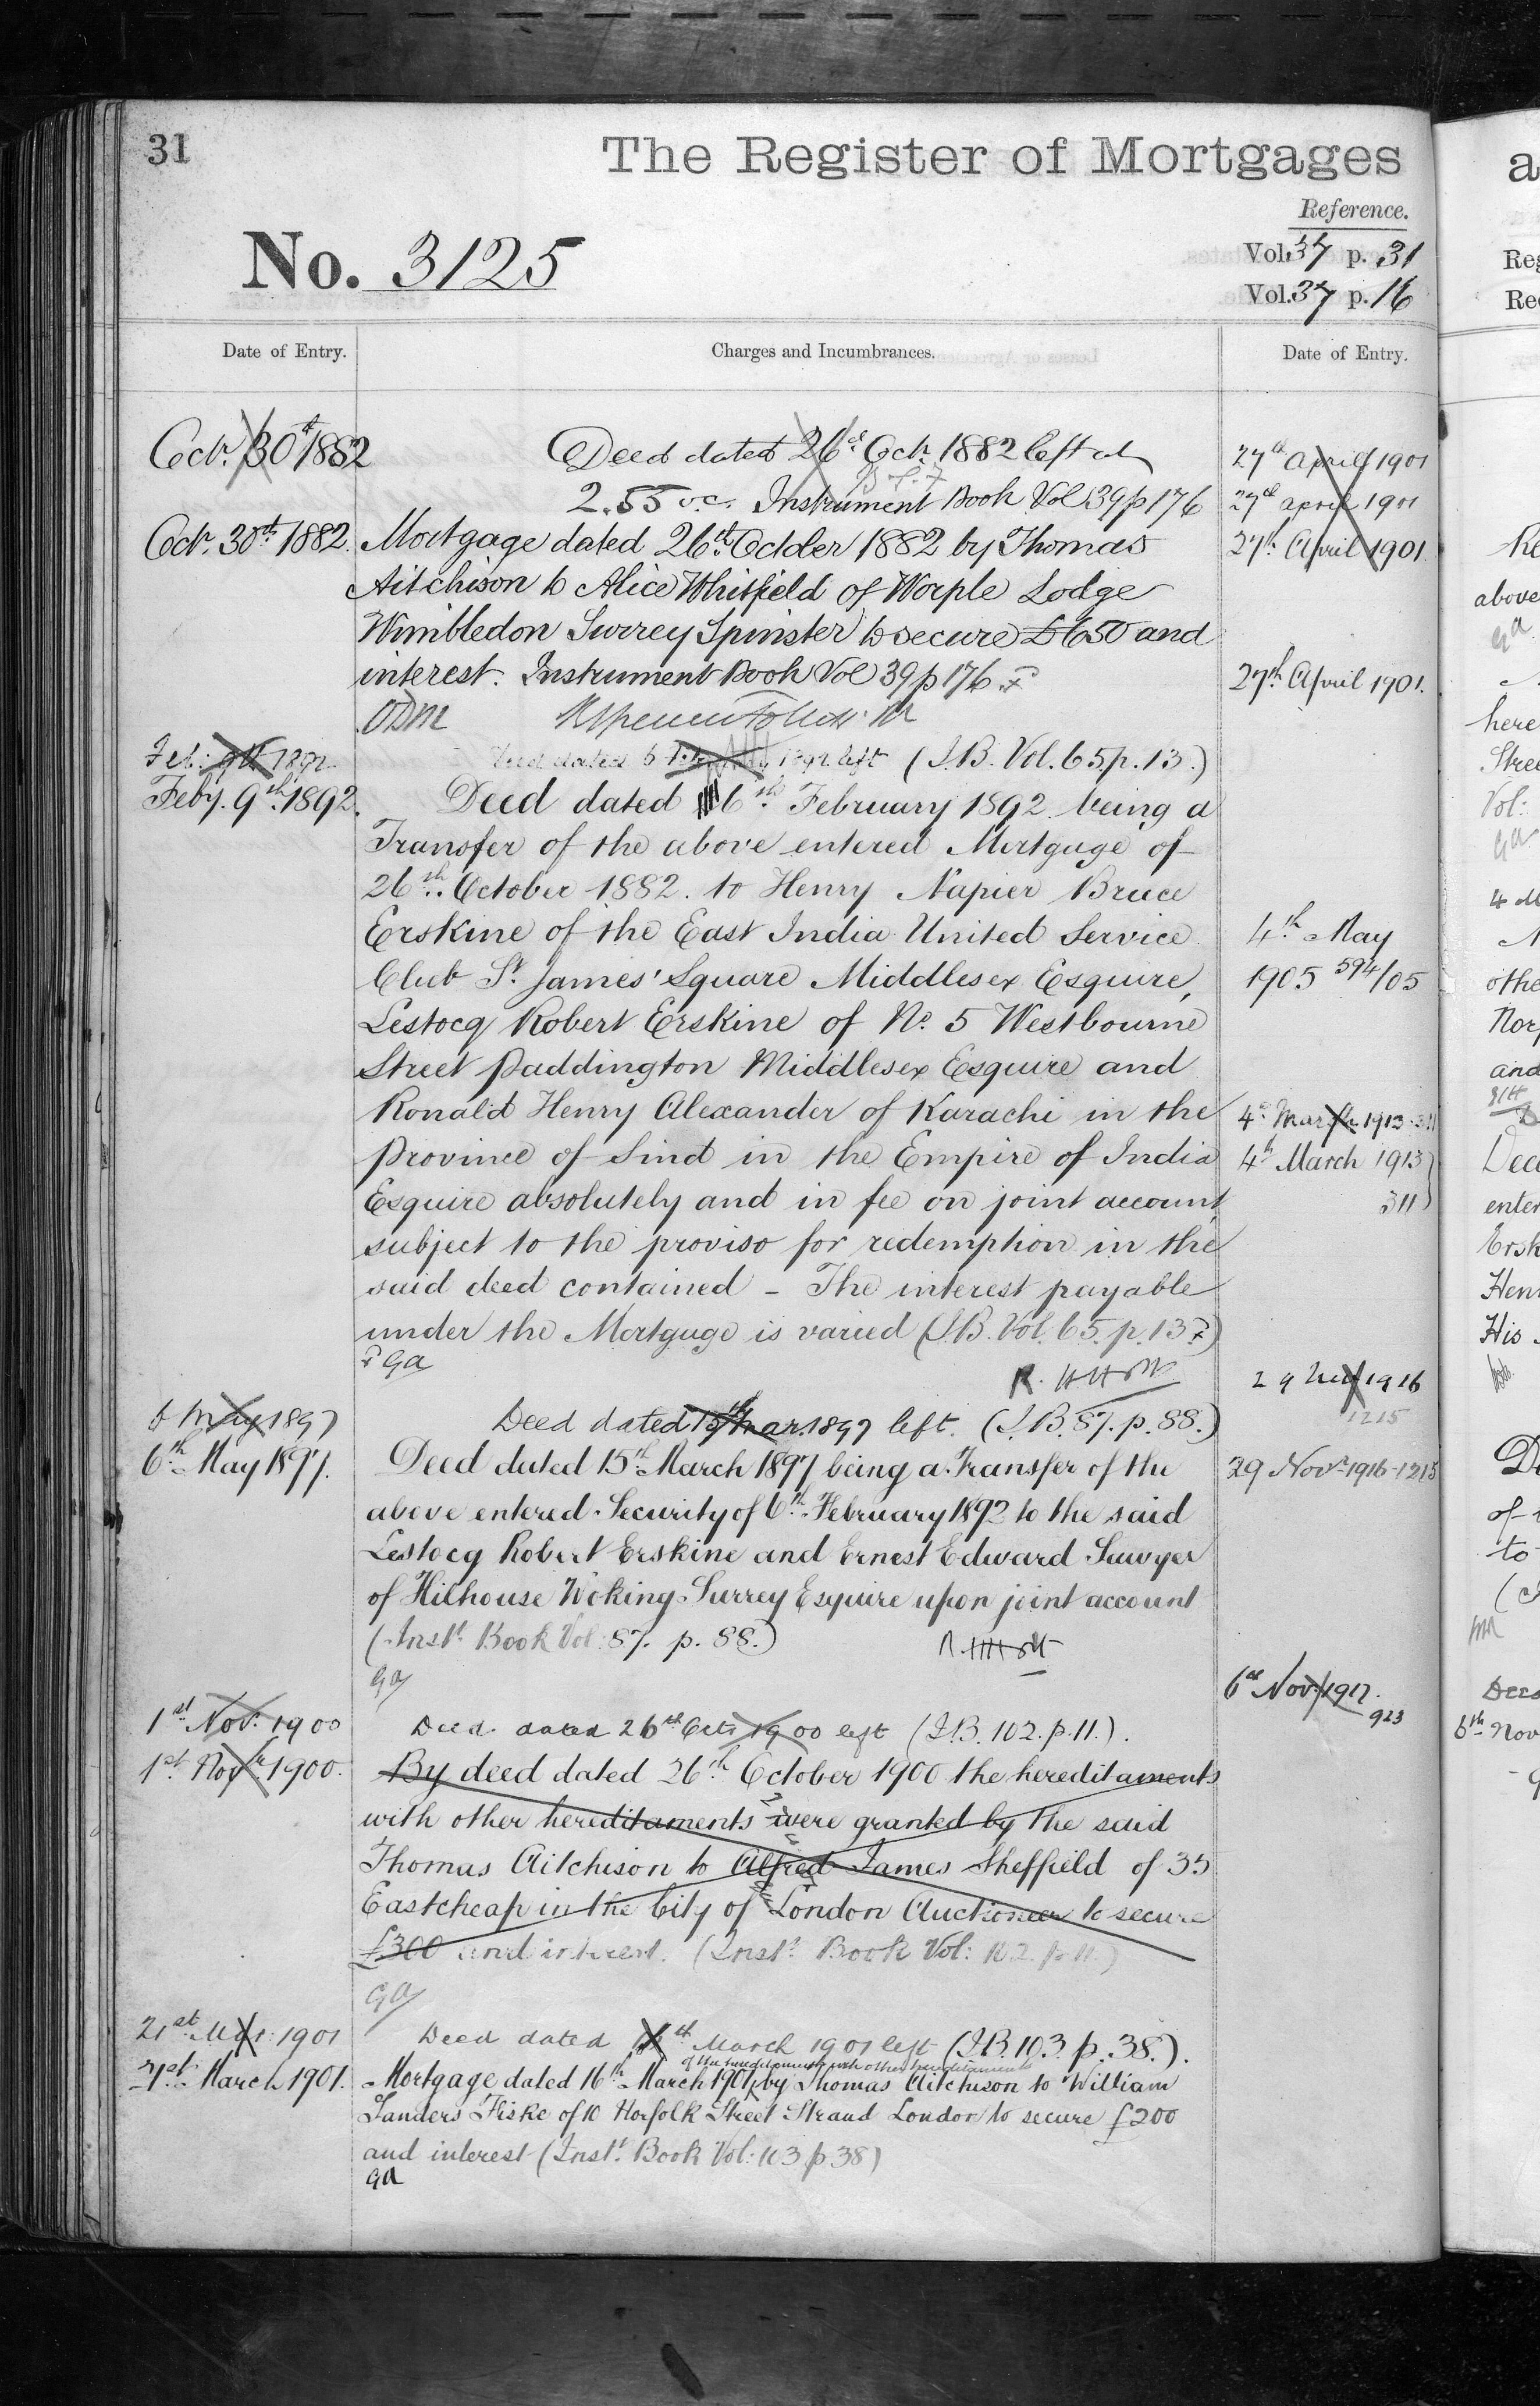 31
The Register of Mortgages
Reference.
No. 3125
Vol. 37 p. 31
Vol. 37 p. 16
Date of Entry.
Charges and Incumbrances.
Date of Entry.
Octr. 30th 1882
Deed dated 26th Octr. 1882 left at
2.55 o.c. Instrument Book Vol 39 p 176
Octr. 30th 1882.
Mortgage dated 26th October 1882 by Thomas
Aitchison to Alice Whitfield of Worple Lodge
Wimbledon Surrey Spinster to secure £650 and
interest. Instrument Book Vol 39 p 176
ODM
Feb: 9th 1892.
Deed dated 6 Feby 1892 left (I.B. Vol. 65. p. 13.)
Feby. 9th 1892.
Deed dated 6th February 1892 being a
Transfer of the above entered Mortgage of
26th October 1882. to Henry Napier Bruce
Erskine of the East India United Service
Club St. James' Square Middlesex Esquire,
Lestocq Robert Erskine of No. 5 Westbourne
Street Paddington Middlesex Esquire and
Ronald Henry Alexander of Karachi in the
Province of Sind in the Empire of India
Esquire absolutely and in fee on joint account
subject to the proviso for redemption in the
said deed contained - The interest payable
under the Mortgage is varied (I.B. Vol. 65. p. 13)
ga
6 May 1897
Deed dated 15th Mar. 1897 left. (I.B. 87. p. 88.)
6th May 1897.
Deed dated 15th March 1897 being a Transfer of the
above entered Security of 6th February 1892 to the said
Lestocq Robert Erskine and Ernest Edward Sawyer
of Hilhouse Woking Surrey Esquire upon joint account
(Instt. Book Vol: 87. p. 88.)
ga
1st Nov: 1900
Deed dated 26th Octr 1900 left (I.B. 102. p. 11.).
1st Novr 1900.
By deed dated 26th October 1900 the hereditaments
with other hereditaments were granted by the said
Thomas Aitchison to Alfred James Sheffield of 35
Eastcheap in the City of London Auctioneer to secure
£300 and interest. (Instt. Book Vol: 102. p. 11.)
ga
21st Mar: 1901
Deed dated 16th March 1901 left (I.B. 103. p. 38.).
of the hereditaments with other hereditaments
21st March 1901.
Mortgage dated 16th March 1901 by Thomas Aitchison to William
Sanders Fiske of 10 Norfolk Street Strand London to secure £200
and interest (Instt. Book Vol: 103 p 38)
ga
27th April 1901
27th April 1901
27th April 1901.
27th April 1901.
4th May
1905 594/05
4th March 1913 311
4th March 1913
311
29 1916
1215
29 Novr 1916 - 1215
6th Nov. 1917.
923
a
Reg
above
ga
here
Stree
Vol:
ga
othe
Nor
and
Dec
enter
Ersk
Hen
His
of
to
6th Nov